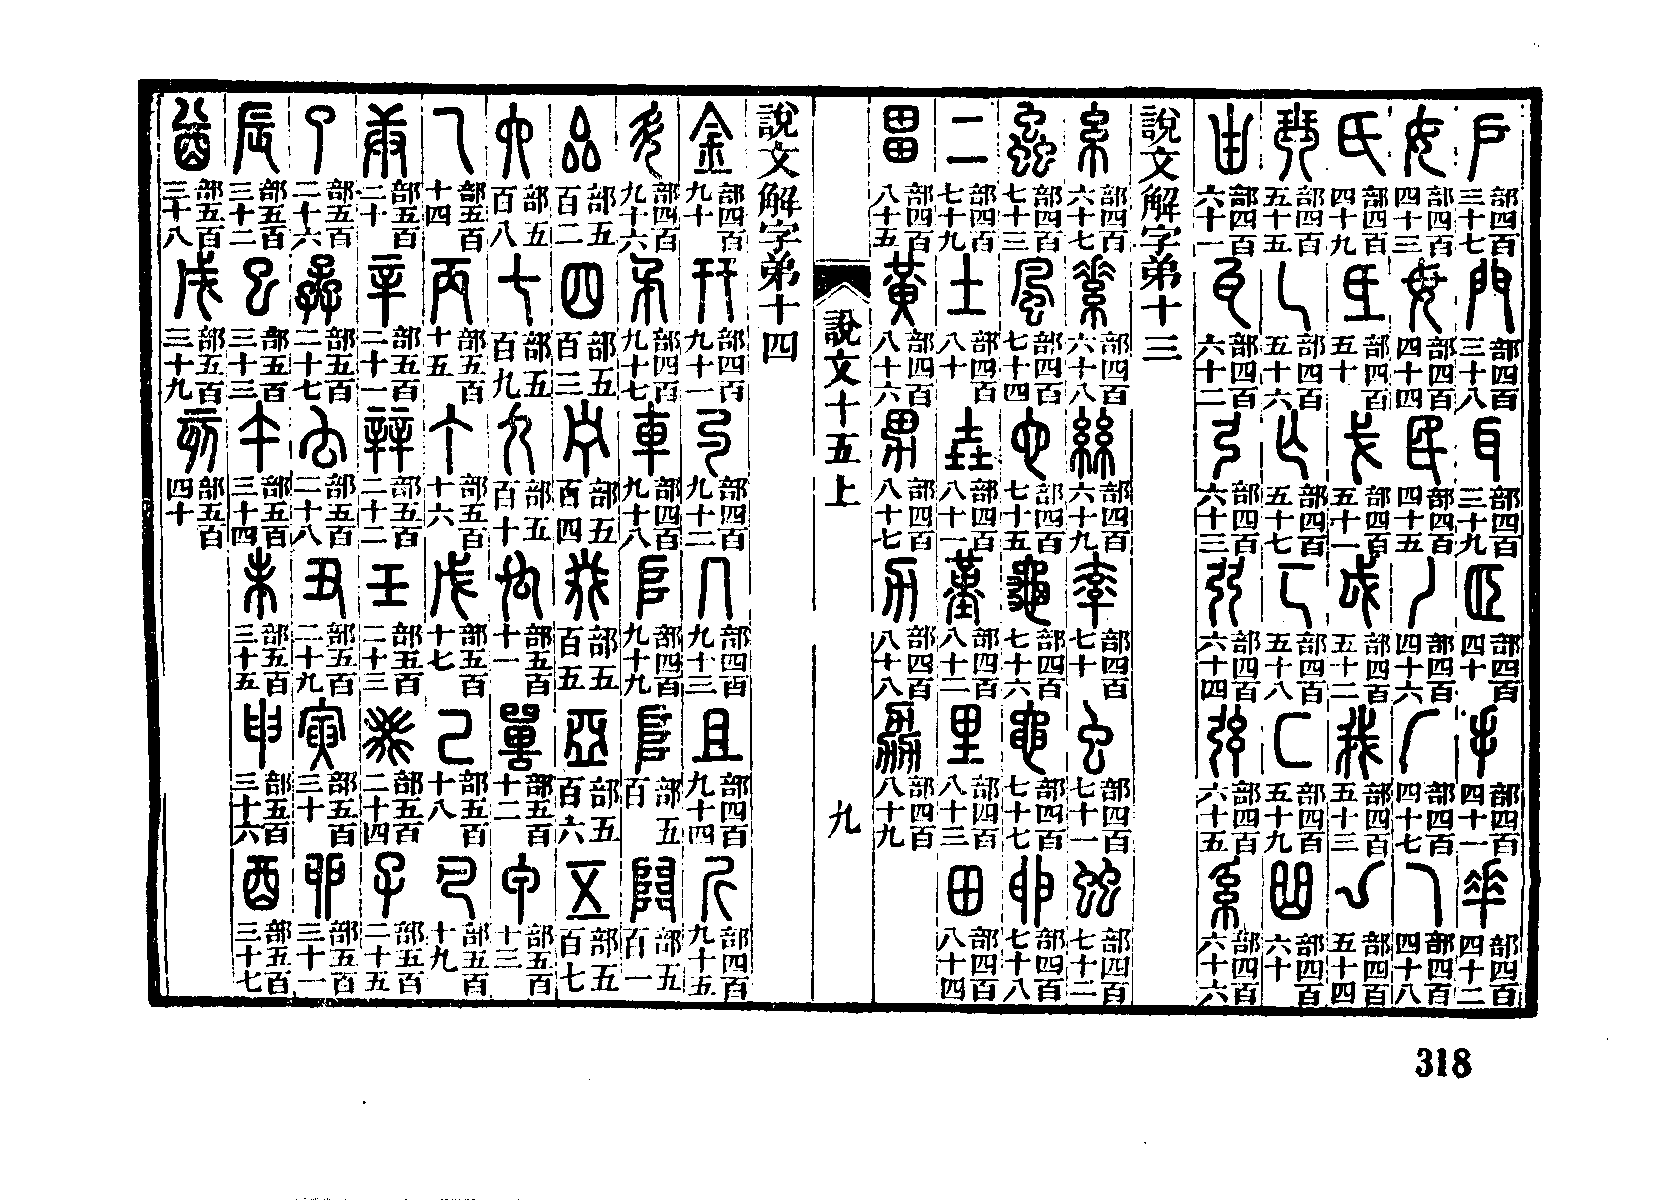 戶部四百三十七門部四百三十八耳部四百三十九𦣞部四百四十手部四百四十一𠦬部四百四十二
女部四百四十三毋部四百四十四民部四百四十五丿部四百四十六𠂆部四百四十七乁部四百四十八
氏部四百四十九氐部四百五十戈部四百五十一戉部四百五十二我部四百五十三亅部四百五十四
珡部四百五十五乚部四百五十六亾部四百五十七匸部四百五十八匚部四百五十九曲部四百六十
甾部四百六十一瓦部四百六十二弓部四百六十三弜部四百六十四弦部四百六十五系部四百六十六
說文解字弟十三
糸部四百六十七素部四百六十八絲部四百六十九率部四百七十虫部四百七十一䖵部四百七十二
蟲部四百七十三風部四百七十四它部四百七十五龜部四百七十六黽部四百七十七卵部四百七十八
二部四百七十九土部四百八十垚部四百八十一堇部四百八十二里部四百八十三田部四百八十四
畕部四百八十五黃部四百八十六男部四百八十七力部四百八十八劦部四百八十九
說文十五上 九
說文解字弟十四
金部四百九十幵部四百九十一勺部四百九十二几部四百九十三且部四百九十四斤部四百九十五
斗部四百九十六矛部四百九十七車部四百九十八𠂤部四百九十九𨸏部五百𨺅部五百一
厽部五百二四部五百三宁部五百四叕部五百五亞部五百六五部五百七
六部五百八七部五百九九部五百十禸部五百十一嘼部五百十二甲部五百十三
乙部五百十四丙部五百十五丁部五百十六戊部五百十七己部五百十八巴部五百十九
庚部五百二十辛部五百二十一辡部五百二十二壬部五百二十三癸部五百二十四子部五百二十五
了部五百二十六孨部五百二十七𠫓部五百二十八丑部五百二十九寅部五百三十卯部五百三十一
辰部五百三十二巳部五百三十三午部五百三十四未部五百三十五申部五百三十六酉部五百三十七
酋部五百三十八戌部五百三十九亥部五百四十
318